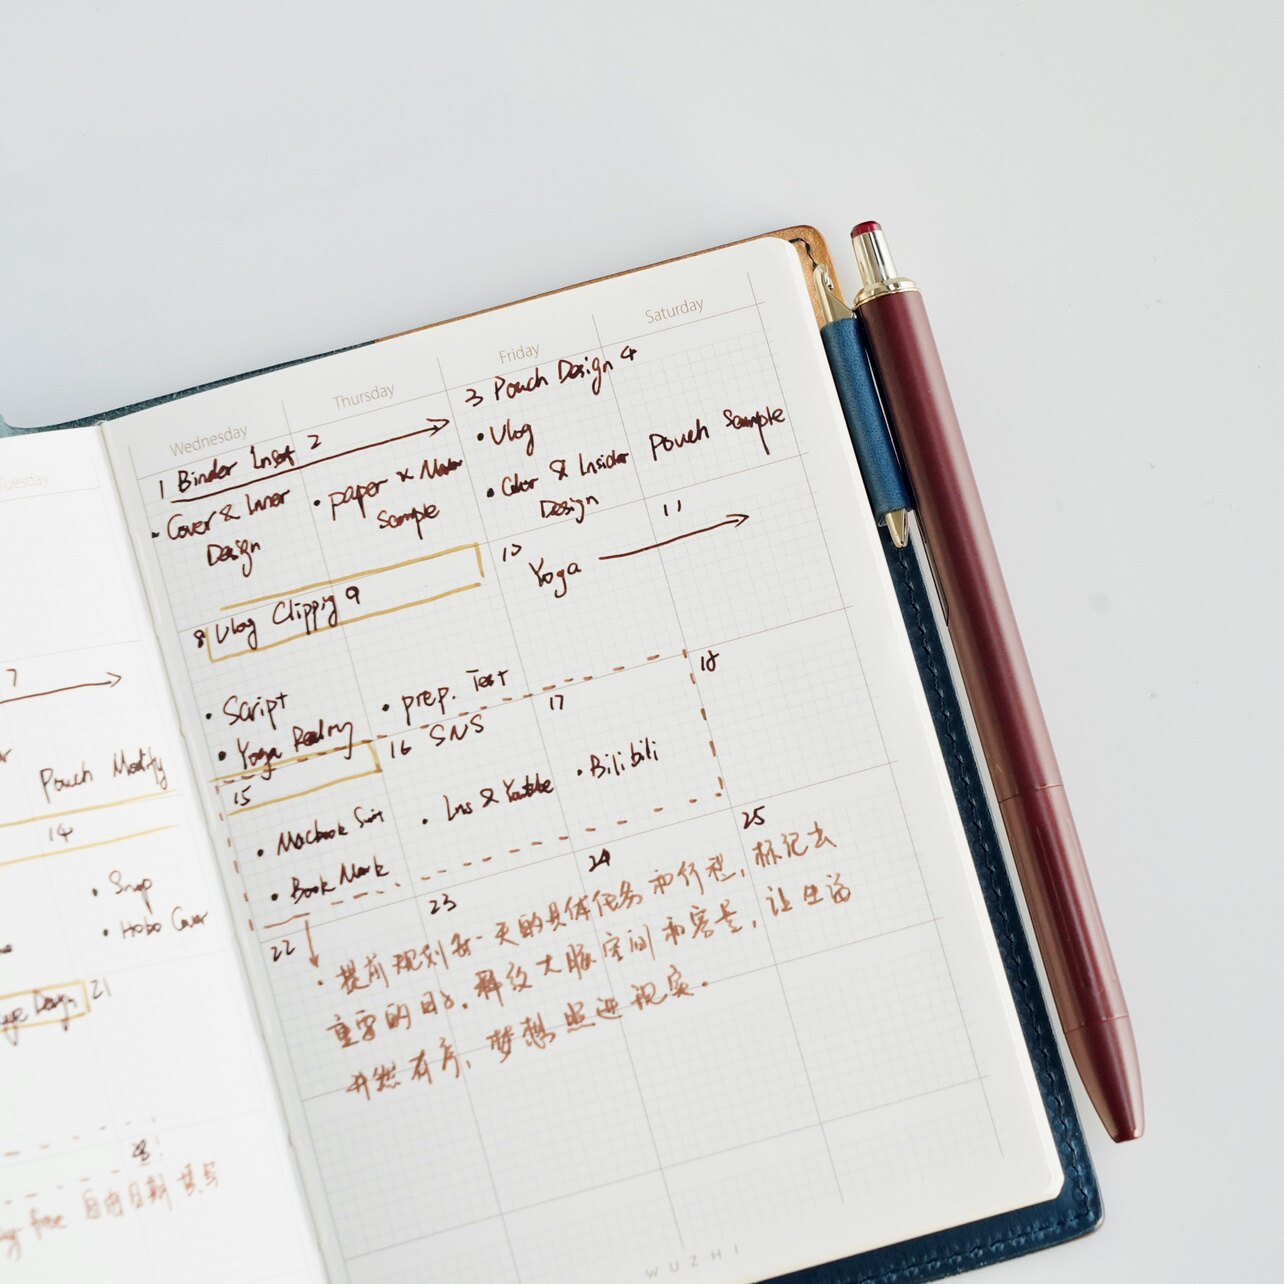 Tuesday
7
Pouch Modify
14
• Snap
• Hobo Cover
Design 21
free 自由日期 填写
Wednesday
Thursday
Friday
Saturday
1 Binder Insert 2
3 Pouch Design 4
• Cover & Inner
Design
• paper ×
Sample
• Vlog
• Color & Insider
Design
Pouch Sample
8 Vlog Clippig 9
10
Yoga
11
• Script
• Yoga
• prep. Test
15
16 SNS
17
18
• Macbook Suit
• Book Mark
• Ins & Youtube
• Bilibili
22
23
24
25
• 提前规划每一天的具体任务和行程,标记去
重要的日子。释放大脑空间和容量,让生活
井然有序,梦想照进现实。
WUZHI